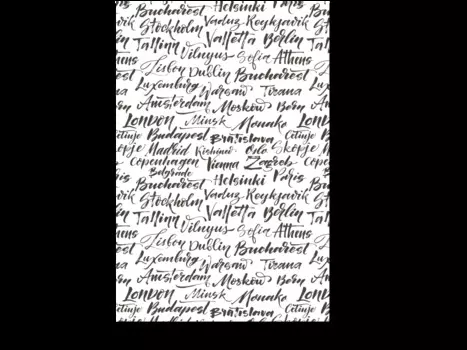 Bucharest Helsinki Paris
Stockholm Vaduz Reykjavik
Tallinn Valletta Berlin
Vilnyus Sofia Athens
Lisbon Dublin Bucharest
Luxemburg Warsaw Tirana
Amsterdam Moskow Bern
London Minsk Monako London
Cetinje Budapest Bratislava Cetinje
Madrid Kishinev Oslo Skopje
Copenhagen Vienna Zagreb
Belgrade
Bucharest Helsinki Paris
Stockholm Vaduz Reykjavik
Tallinn Valletta Berlin
Vilnyus Sofia Athens
Lisbon Dublin Bucharest
Luxemburg Warsaw Tirana
Amsterdam Moskow Bern
London Minsk Monako
Budapest Bratislava Cetinje